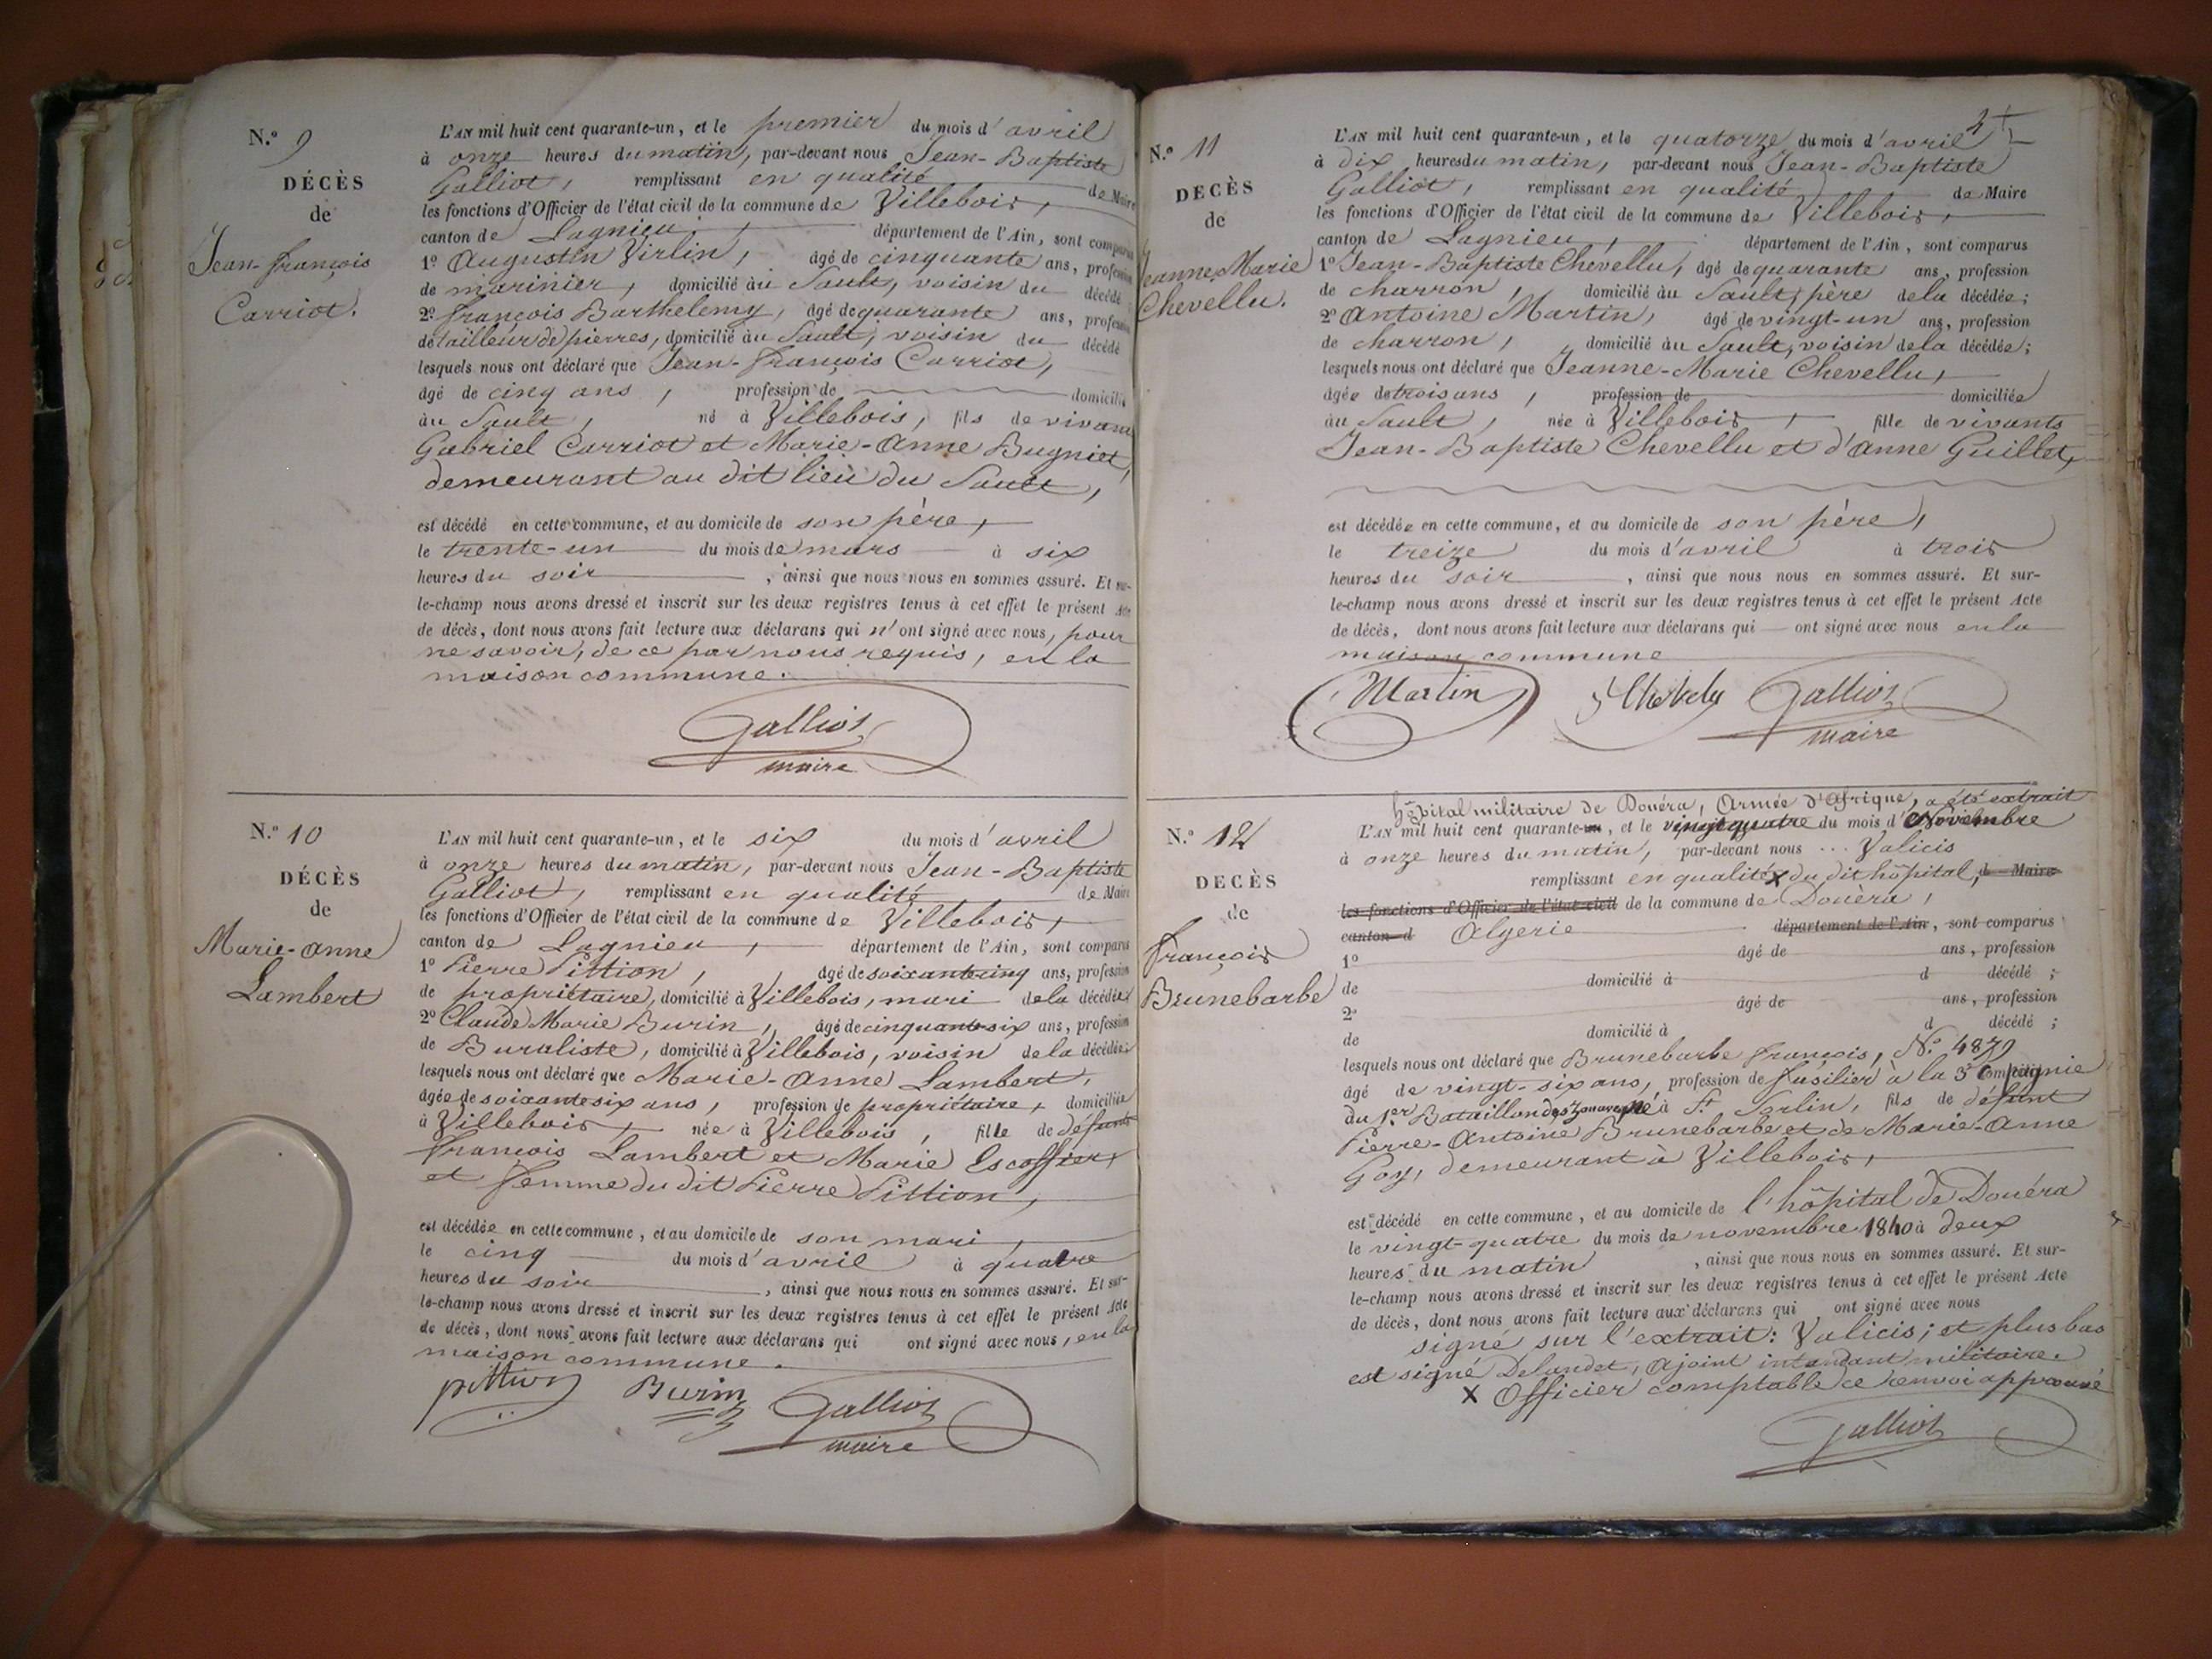 N.º 9
DÉCÈS
de
Jean-François
Carriot.
L'AN mil huit cent quarante-un, et le premier du mois d'avril
à onze heures du matin, par-devant nous Jean-Baptiste
Galliot, remplissant en qualité de Maire
les fonctions d'Officier de l'état civil de la commune de Villebois,
canton de Lagnieu, département de l'Ain, sont comparus
1º Augustin Virlin, âgé de cinquante ans, profession
de marinier, domicilié au Sault, voisin du décédé
2º François Barthelemy, âgé de quarante ans, profession
de tailleur de pierres, domicilié au Sault, voisin du décédé
lesquels nous ont déclaré que Jean-François Carriot,
âgé de cinq ans, profession de domicilié
au Sault, né à Villebois, fils de vivans
Gabriel Carriot et Marie-Anne Bugniet,
demeurant au dit lieu du Sault,
est décédé en cette commune, et au domicile de son père,
le trente-un du mois de mars à six
heures du soir, ainsi que nous nous en sommes assuré. Et sur-
le-champ nous avons dressé et inscrit sur les deux registres tenus à cet effet le présent Acte
de décès, dont nous avons fait lecture aux déclarans qui n'ont signé avec nous, pour
ne savoir, de ce par nous requis, en la
maison commune.
Galliot
maire
N.º 10
DÉCÈS
de
Marie-Anne
Lambert
L'AN mil huit cent quarante-un, et le six du mois d'avril
à onze heures du matin, par-devant nous Jean-Baptiste
Galliot, remplissant en qualité de Maire
les fonctions d'Officier de l'état civil de la commune de Villebois,
canton de Lagnieu, département de l'Ain, sont comparus
1º Pierre Pittion, âgé de soixante cinq ans, profession
de propriétaire, domicilié à Villebois, mari de la décédée
2º Claude Marie Burin, âgé de cinquante six ans, profession
de Buraliste, domicilié à Villebois, voisin de la décédée;
lesquels nous ont déclaré que Marie-Anne Lambert,
âgée de soixante six ans, profession de propriétaire, domiciliée
à Villebois, née à Villebois, fille de défunts
François Lambert et Marie Escoffier,
et femme du dit Pierre Pittion,
est décédée en cette commune, et au domicile de son mari,
le cinq du mois d'avril à quatre
heures du soir, ainsi que nous nous en sommes assuré. Et sur-
le-champ nous avons dressé et inscrit sur les deux registres tenus à cet effet le présent Acte
de décès, dont nous avons fait lecture aux déclarans qui ont signé avec nous, en la
maison commune.
pittion Burin Galliot
maire
N.º 11
DECÈS
de
Jeanne Marie
Chevellu.
L'AN mil huit cent quarante-un, et le quatorze du mois d'avril
à dix heures du matin, par-devant nous Jean-Baptiste
Galliot, remplissant en qualité de Maire
les fonctions d'Officier de l'état civil de la commune de Villebois,
canton de Lagnieu, département de l'Ain, sont comparus
1º Jean-Baptiste Chevellu, âgé de quarante ans, profession
de charron, domicilié au Sault, père de la décédée;
2º Antoine Martin, âgé de vingt-un ans, profession
de charron, domicilié au Sault, voisin de la décédée;
lesquels nous ont déclaré que Jeanne-Marie Chevellu,
âgée de trois ans, profession de domiciliée
au Sault, née à Villebois, fille de vivants
Jean-Baptiste Chevellu et d'Anne Guillet,
est décédée en cette commune, et au domicile de son père,
le treize du mois d'avril à trois
heures du soir, ainsi que nous nous en sommes assuré. Et sur-
le-champ nous avons dressé et inscrit sur les deux registres tenus à cet effet le présent Acte
de décès, dont nous avons fait lecture aux déclarans qui ont signé avec nous en la
maison commune
Martin Galliot
maire
N.º 12
DECÈS
de
François
Brunebarbe
hôpital militaire de Douéra, Armée d'Afrique, a été extrait
L'AN mil huit cent quarante-un, et le vingt quatre du mois d'Novembre
à onze heures du matin, par-devant nous ... Valicis
remplissant en qualité X du dit hôpital, de Maire
les fonctions d'Officier de l'état civil de la commune de Douèra,
canton d Algerie département de l'Ain, sont comparus
1º âgé de ans, profession
de domicilié à d décédé;
2º âgé de ans, profession
de domicilié à d décédé;
lesquels nous ont déclaré que Brunebarbe François, N.º 4879
âgé de vingt-six ans, profession de fusilier à la 3e Compagnie
du 1.er Bataillon des zouaves né à St. Sorlin, fils de défunt
Pierre-Antoine Brunebarbe et de Marie-Anne
Goy, demeurant à Villebois,
est décédé en cette commune, et au domicile de l'hôpital de Douéra
le vingt-quatre du mois de novembre 1840 à deux
heures du matin, ainsi que nous nous en sommes assuré. Et sur-
le-champ nous avons dressé et inscrit sur les deux registres tenus à cet effet le présent Acte
de décès, dont nous avons fait lecture aux déclarans qui ont signé avec nous
signé sur l'extrait: Valicis; et plus bas
est signé Delandet, ajoint intendant militaire.
X Officier comptable ce renvoi approuvé
Galliot